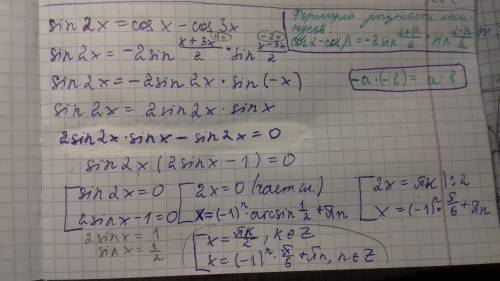 sin2x = cosx - cos3x
Формула разности косинусов:
cosα - cosβ = -2sin (α+β)/2 · sin (α-β)/2
sin2x = -2sin (x+3x)/2 · sin (x-3x)/2
4x
-2x
sin2x = -2sin2x · sin(-x)
-a·(-b) = a·b
sin2x = 2sin2x · sinx
2sin2x · sinx - sin2x = 0
sin2x (2sinx - 1) = 0
[ sin2x = 0
2sinx - 1 = 0
2sinx = 1
sinx = 1/2
[ 2x = 0 (част сл.)
x = (-1)ⁿ · arcsin 1/2 + πn
[ 2x = πk |:2
x = (-1)ⁿ · π/6 + πn
[ x = πk/2, k∈Z
x = (-1)ⁿ · π/6 + πn, n∈Z